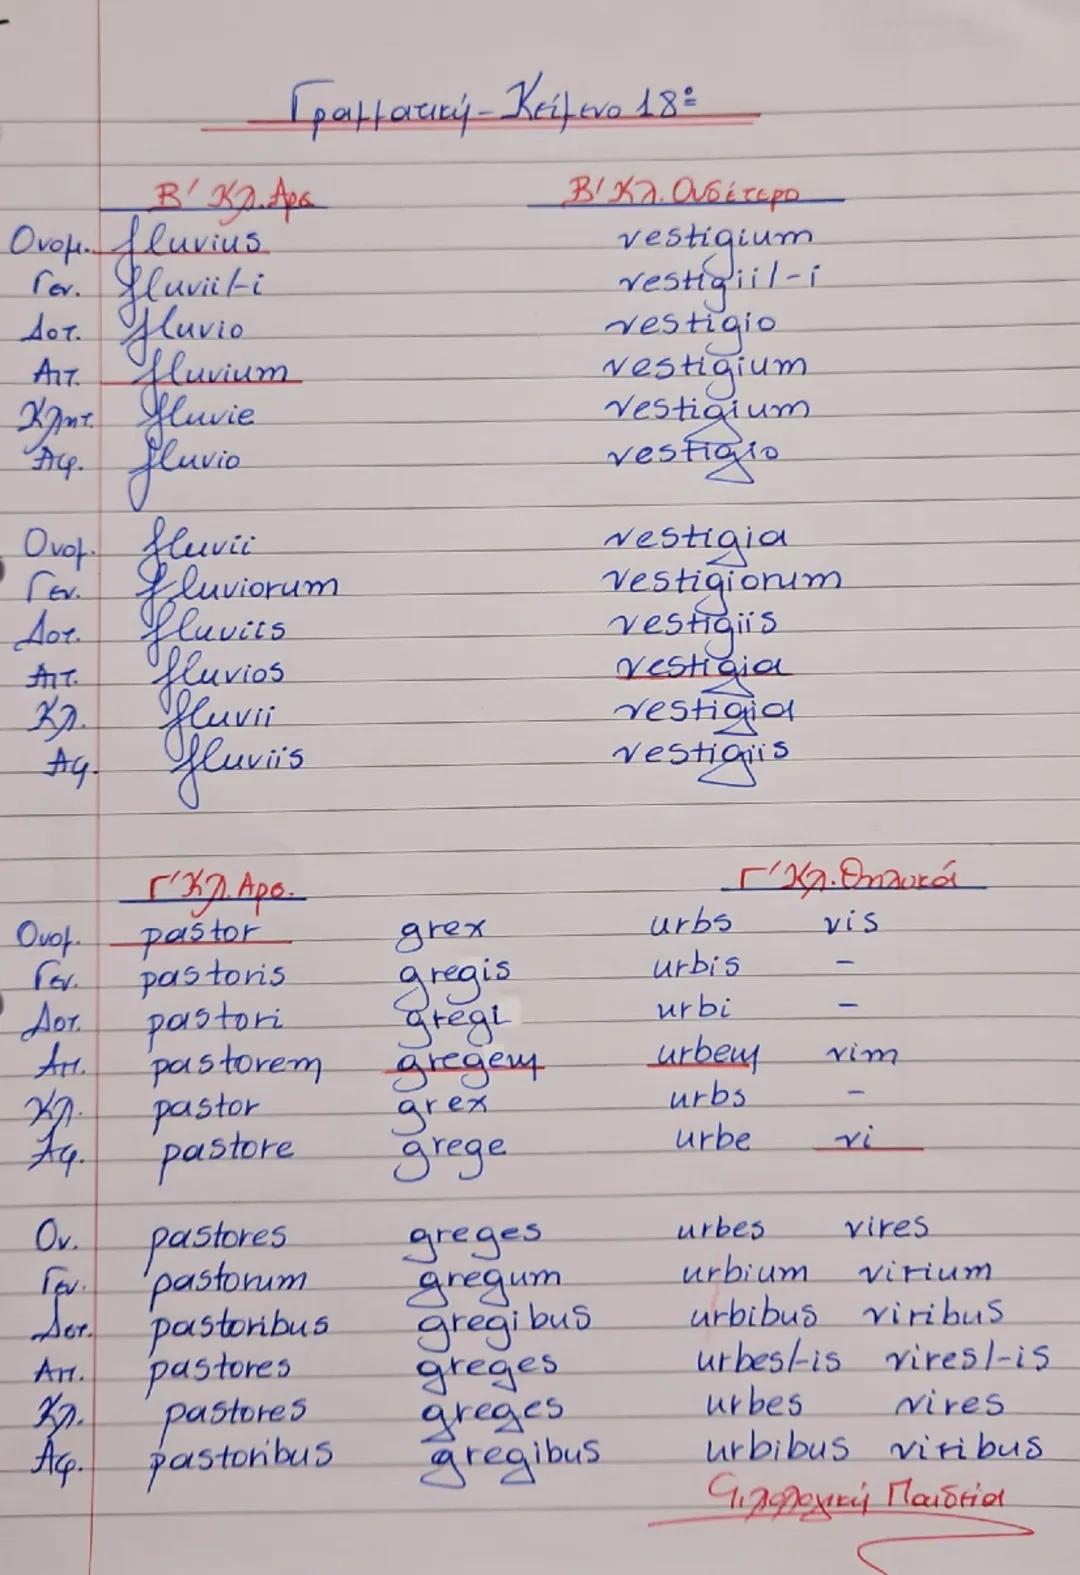 Γραμματική - Κείμενο 18º
Β' Κλ. Αρσ. Β' Κλ. Ουδέτερο
Ονομ. fluvius vestigium
Γεν. fluvii/-i vestigii/-i
Δοτ. fluvio vestigio
Αιτ. fluvium vestigium
Κλητ. fluvie vestigium
Αφ. fluvio vestigio
Ονομ. fluvii vestigia
Γεν. fluviorum vestigiorum
Δοτ. fluviis vestigiis
Αιτ. fluvios vestigia
Κλ. fluvii vestigia
Αφ. fluviis vestigiis
Γ' Κλ. Αρσ. Γ' Κλ. Θηλυκά
Ονομ. pastor grex urbs vis
Γεν. pastoris gregis urbis -
Δοτ. pastori gregi urbi -
Αιτ. pastorem gregem urbem vim
Κλ. pastor grex urbs -
Αφ. pastore grege urbe vi
Ον. pastores greges urbes vires
Γεν. pastorum gregum urbium virium
Δοτ. pastoribus gregibus urbibus viribus
Αιτ. pastores greges urbes/-is vires/-is
Κλ. pastores greges urbes vires
Αφ. pastoribus gregibus urbibus viribus
Φιλολογική Παιδεία